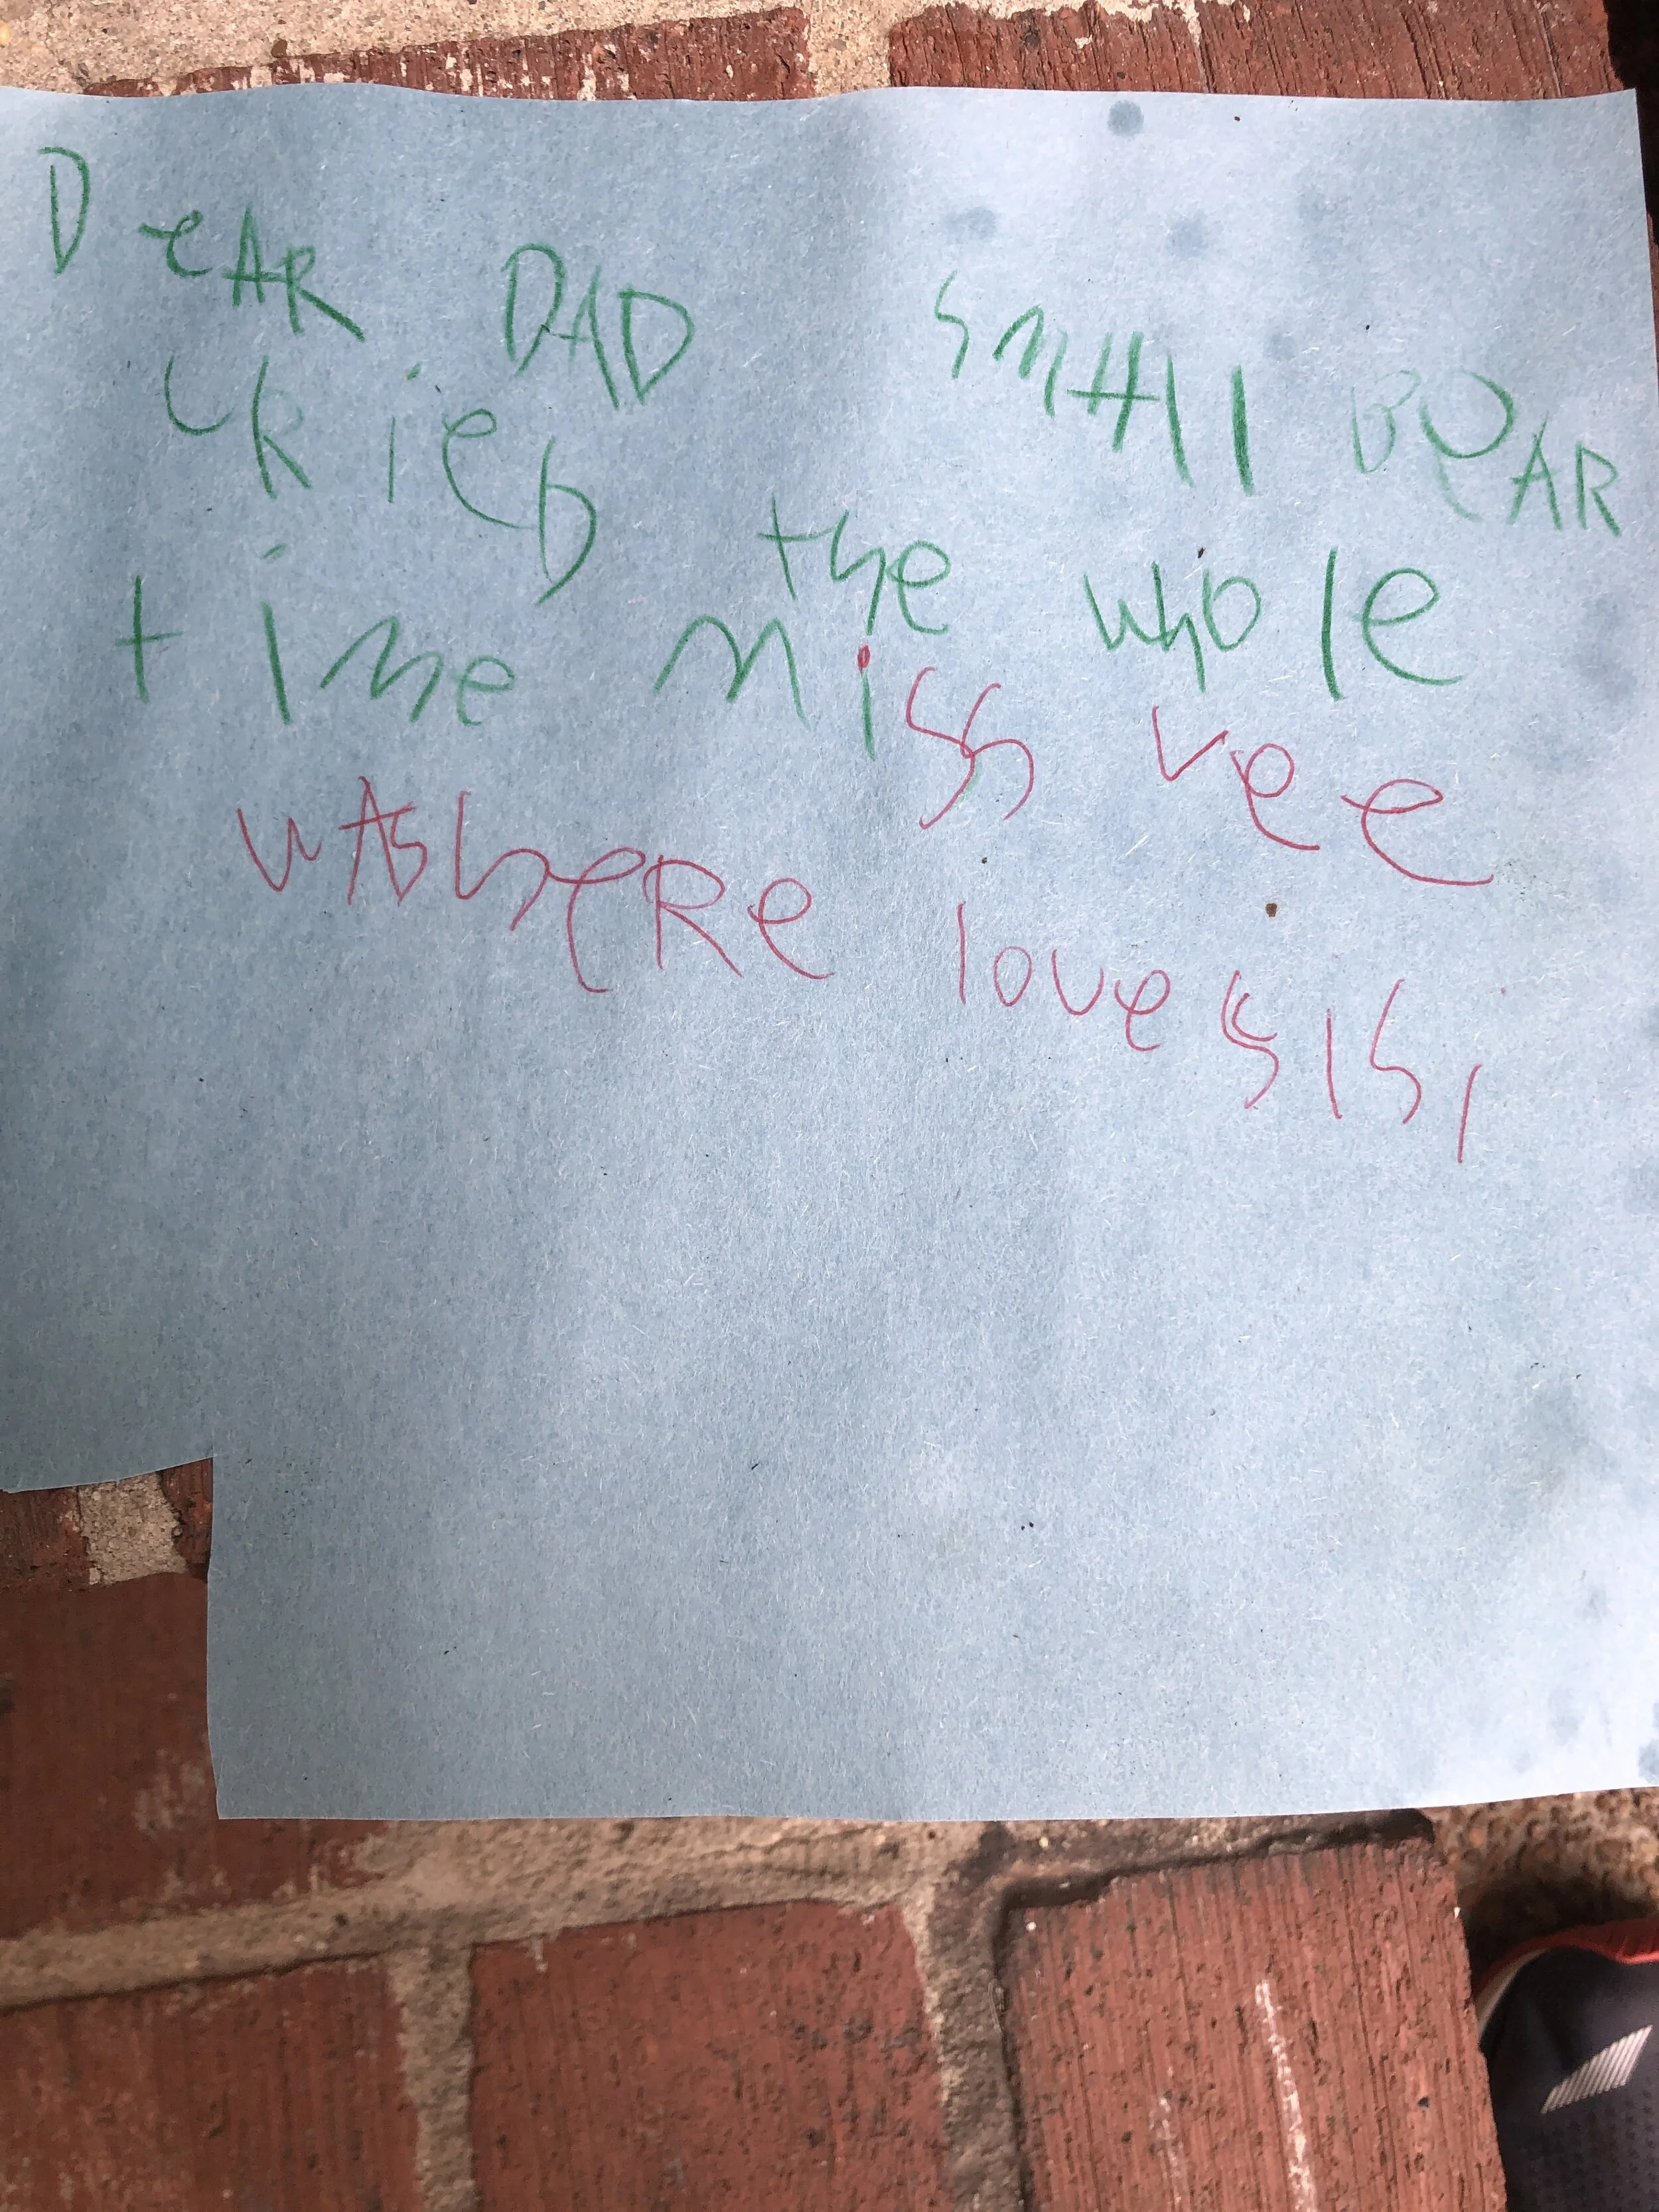 DeAR DAD SMAll BeAR
cRieD the whole
time miss vee
wAs heRe love sisi